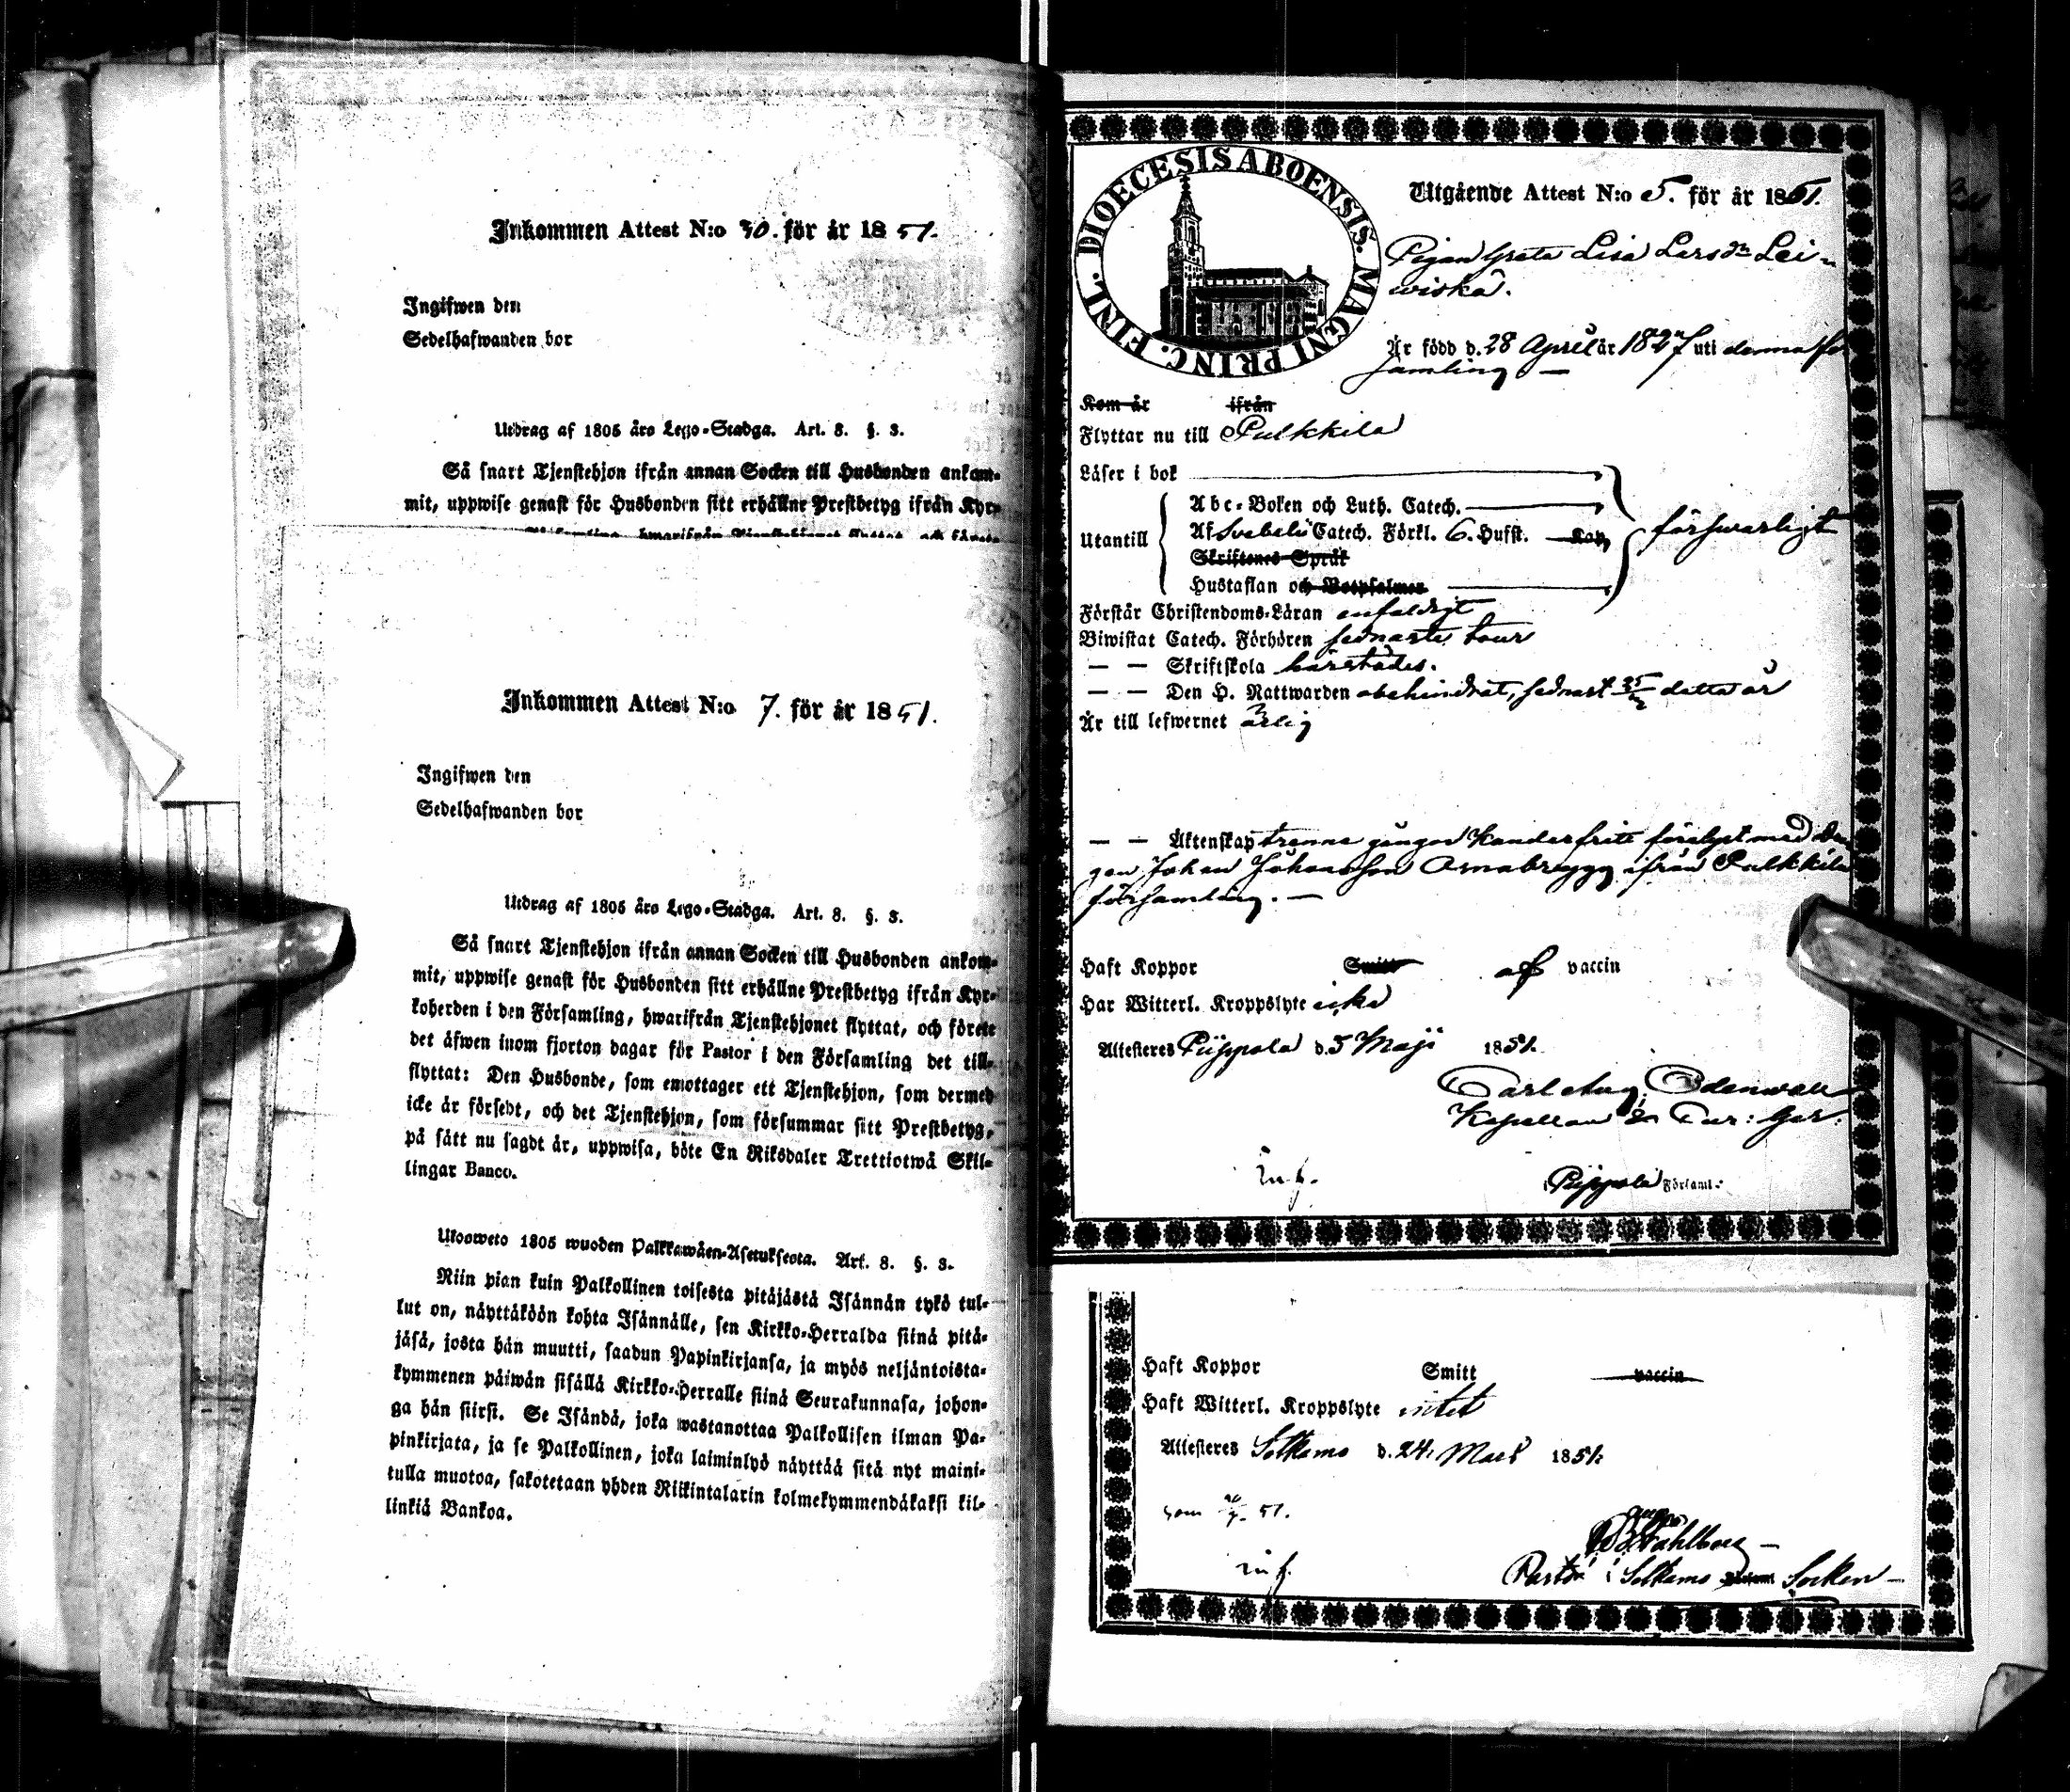 Inkommen Attest N:o 30. för år 1851.
Ingifwen den
Sedelhafwanden bor
Utdrag af 1805 års Lego-Stadga. Art. 8. §. 3.
Så snart Tjenstehjon ifrån annan Socken till Husbonden ankom-
mit, uppwise genast för Husbonden sitt erhållne Prestbetyg ifrån Kyr-
Inkommen Attest N:o 7. för år 1851.
Ingifwen den
Sedelhafwanden bor
Utdrag af 1805 års Lego-Stadga. Art. 8. §. 3.
Så snart Tjenstehjon ifrån annan Socken till Husbonden ankom-
mit, uppwise genast för Husbonden sitt erhållne Prestbetyg ifrån Kyr-
koherden i den Församling, hwarifrån Tjenstehjonet flyttat, och förete
det äfwen inom fjorton dagar för Pastor i den Församling det till-
flyttat: Den Husbonde, som emottager ett Tjenstehjon, som dermed
icke är försedt, och det Tjenstehjon, som försummar sitt Prestbetyg,
på sätt nu sagdt är, uppwisa, böte En Riksdaler Trettiotwå Skil-
lingar Banco.
Ulosweto 1805 wuoden Palkkawäen-Asetuksesta. Art. 8. §. 3.
Niin pian kuin Palkollinen toisesta pitäjästä Isännän tykö tul-
lut on, näyttäköön kohta Isännälle, sen Kirkko-Herralda siinä pitä-
jäsä, josta hän muutti, saadun Papinkirjansa, ja myös neljäntoista-
kymmenen päiwän sisällä Kirkko-Herralle siinä Seurakunnasa, johon-
ga hän siirsi. Se Isändä, joka wastanottaa Palkollisen ilman Pa-
pinkirjata, ja se Palkollinen, joka laiminlyö näyttää sitä nyt maini-
tulla muotoa, sakotetaan yhden Riikintalarin kolmekymmendäkaksi kil-
linkiä Bankoa.
DIOECESIS ABOENSIS. MAGNI PRINC. FINL.
Utgående Attest N:o 5. för år 1851.
Pigan Greta Lisa Larsdr Lei-
wiskä.
Är född d. 28 April är 1827 uti denna för
samling —
Kom år ifrån
Flyttar nu till Pulkkila
Läser i bok
Utantill
Abc-Boken och Luth. Catech.
Af Svebelii Catech. Förkl. 6. Hufst. Kap
försvarligt
Skriftenes Språk
Hustaflan och Botpsalmer
Förstår Christendoms-Läran enfaldigt
Biwistat Catech. Förhören sednaste tour
— — Skriftskola härstädes.
— — Den H. Nattwarden obehindrat, sednast detta år
Är till lefwernet ärlig
— — Äktenskap trenne gånger hinderfritt förelyst med Drän
gen Johan Johansson ifrån Pulkkila
församling. —
Haft Koppor Smitt af vaccin
Har Witterl. Kroppslyte icke
Attesteres Piippola d. 5 Maji 1851.
Carl Aug. Odenwall
Kapellan
Piippola Församl.
Haft Koppor Smitt vaccin
Haft Witterl. Kroppslyte intet
Attesteres Sotkamo d. 24. Mars 1851.
Wahlberg —
Pastor i Sotkamo Socken —